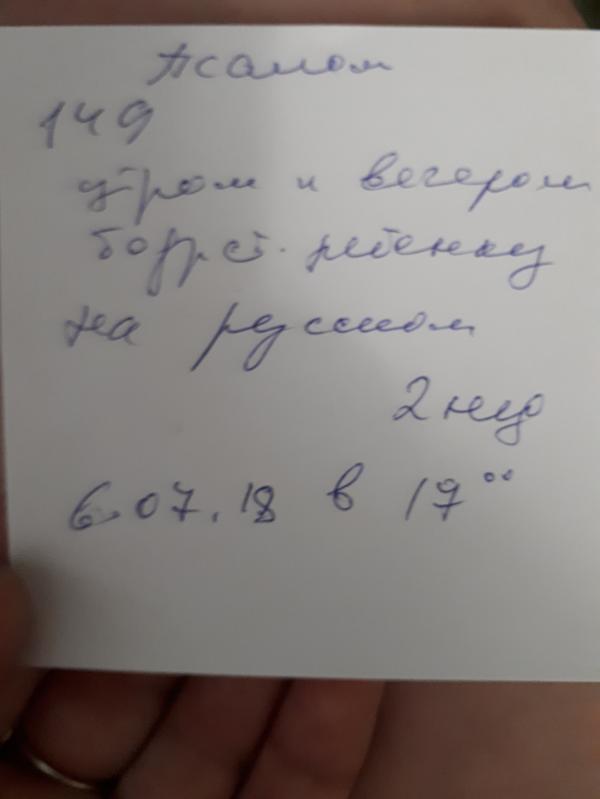 Псалом
149
утром и вечером
ребенку
на русском
2 нед
6.07.18 в 17 ⁰⁰